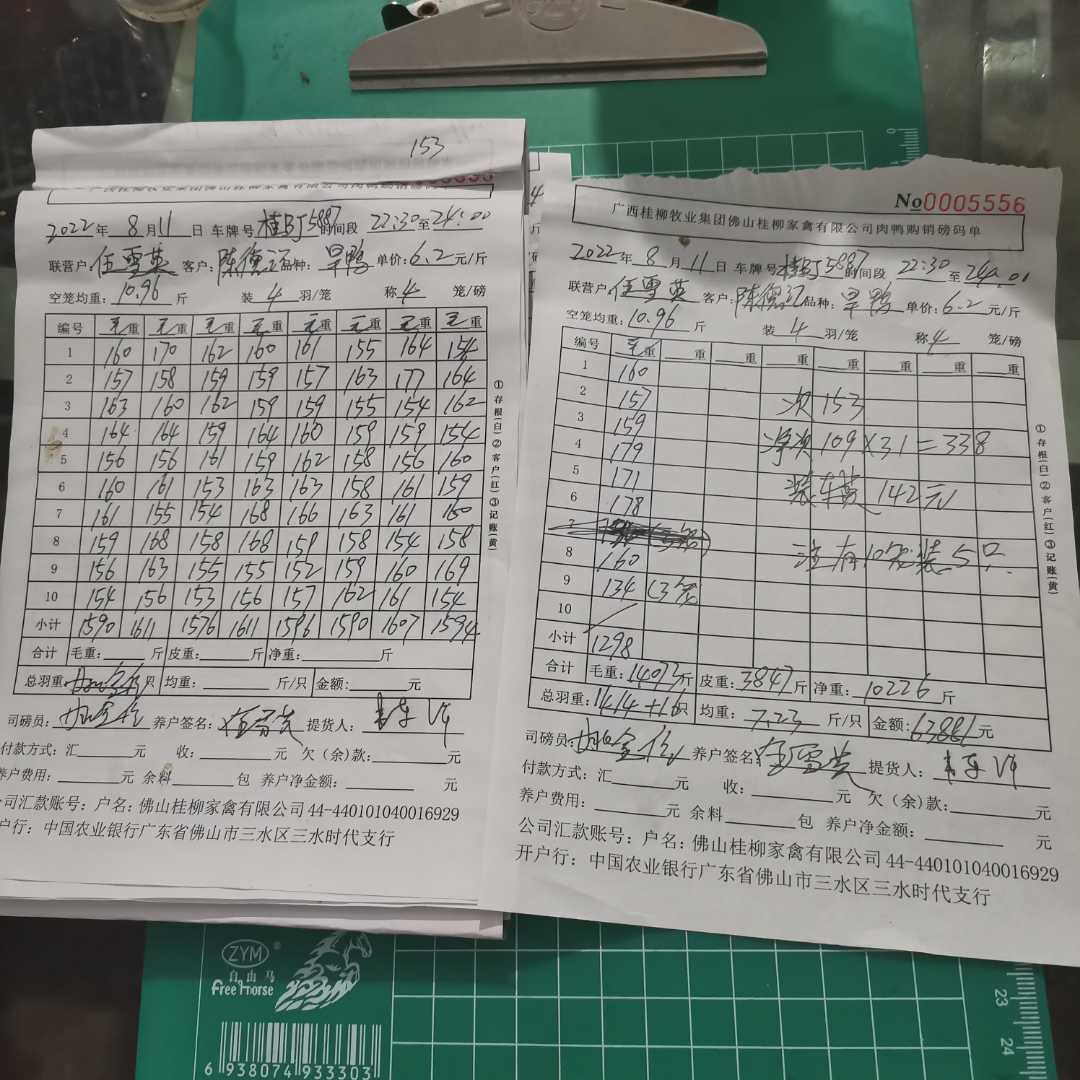 153
2022年 8月11日 车牌号 桂BJ5887 时间段 22:30至24:00
联营户: 伍雪英 客户: 陈 品种: 旱鸭 单价:6.2元/斤
空笼均重:10.96斤 装4羽/笼 称4笼/磅
编号 毛重 毛重 毛重 毛重 毛重 毛重 毛重 毛重
1 160 170 162 160 161 155 164 154
2 157 158 159 159 157 163 177 164
3 163 160 162 159 159 155 154 162
4 164 164 159 164 160 159 159 154
5 156 156 161 159 162 158 156 160
6 160 161 153 163 163 158 161 159
7 161 155 154 168 166 163 161 160
8 159 168 158 168 159 158 154 158
9 156 163 155 155 152 159 160 169
10 154 156 153 156 157 162 161 154
小计 1590 1611 1576 1611 1596 1590 1607 1594
合计 毛重: 斤 皮重: 斤 净重: 斤
总羽重: 只 均重: 斤/只 金额: 元
司磅员: 养户签名: 提货人:
付款方式: 汇 元 收: 元 欠（余）款: 元
养户费用: 元 余料 包 养户净金额: 元
公司汇款账号: 户名: 佛山桂柳家禽有限公司 44-440101040016929
开户行: 中国农业银行广东省佛山市三水区三水时代支行
①存根（白）②客户（红）③记账（黄）
No0005556
广西桂柳牧业集团佛山桂柳家禽有限公司肉鸭购销磅码单
2022年 8月11日 车牌号桂BJ5887 时间段 22:30至24:00
联营户: 伍雪英 客户: 陈 品种: 旱鸭 单价: 6.2元/斤
空笼均重:10.96斤 装4羽/笼 称4笼/磅
编号 毛重 重 重 重 重 重 重 重
1 160
2 157 次 153
3 159
4 179 净次 109×31=338
5 171
6 178 装车费 142元
7
8 160 注有10笼装5只
9 134（3笼
10
小计 1298
合计 毛重:14073斤 皮重:3847斤 净重: 10226斤
总羽重:1414+1只 均重: 7.23 斤/只 金额:63881元
司磅员: 养户签名: 伍雪英 提货人:
付款方式: 汇 元 收: 元 欠（余）款: 元
养户费用: 元 余料 包 养户净金额: 元
公司汇款账号: 户名: 佛山桂柳家禽有限公司 44-440101040016929
开户行: 中国农业银行广东省佛山市三水区三水时代支行
①存根（白）②客户（红）③记账（黄）
ZYM®
自由马
Free Horse
6 938074 933303
23
24